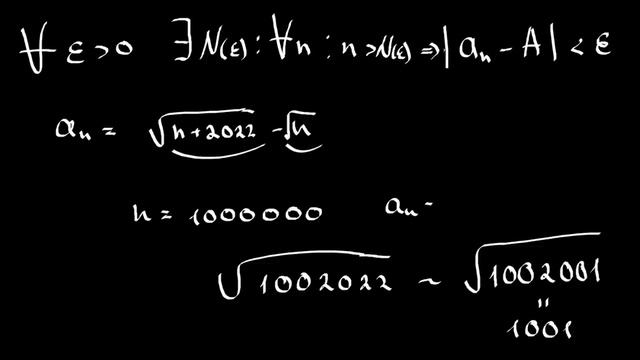 ∀ ε > 0 ∃ N(ε) : ∀n : n > N(ε) ⇒ | aₙ - A | < ε
aₙ = √(n + 2022) - √n
n = 1000000 aₙ -
√1002022 ~ √1002001
"
1001